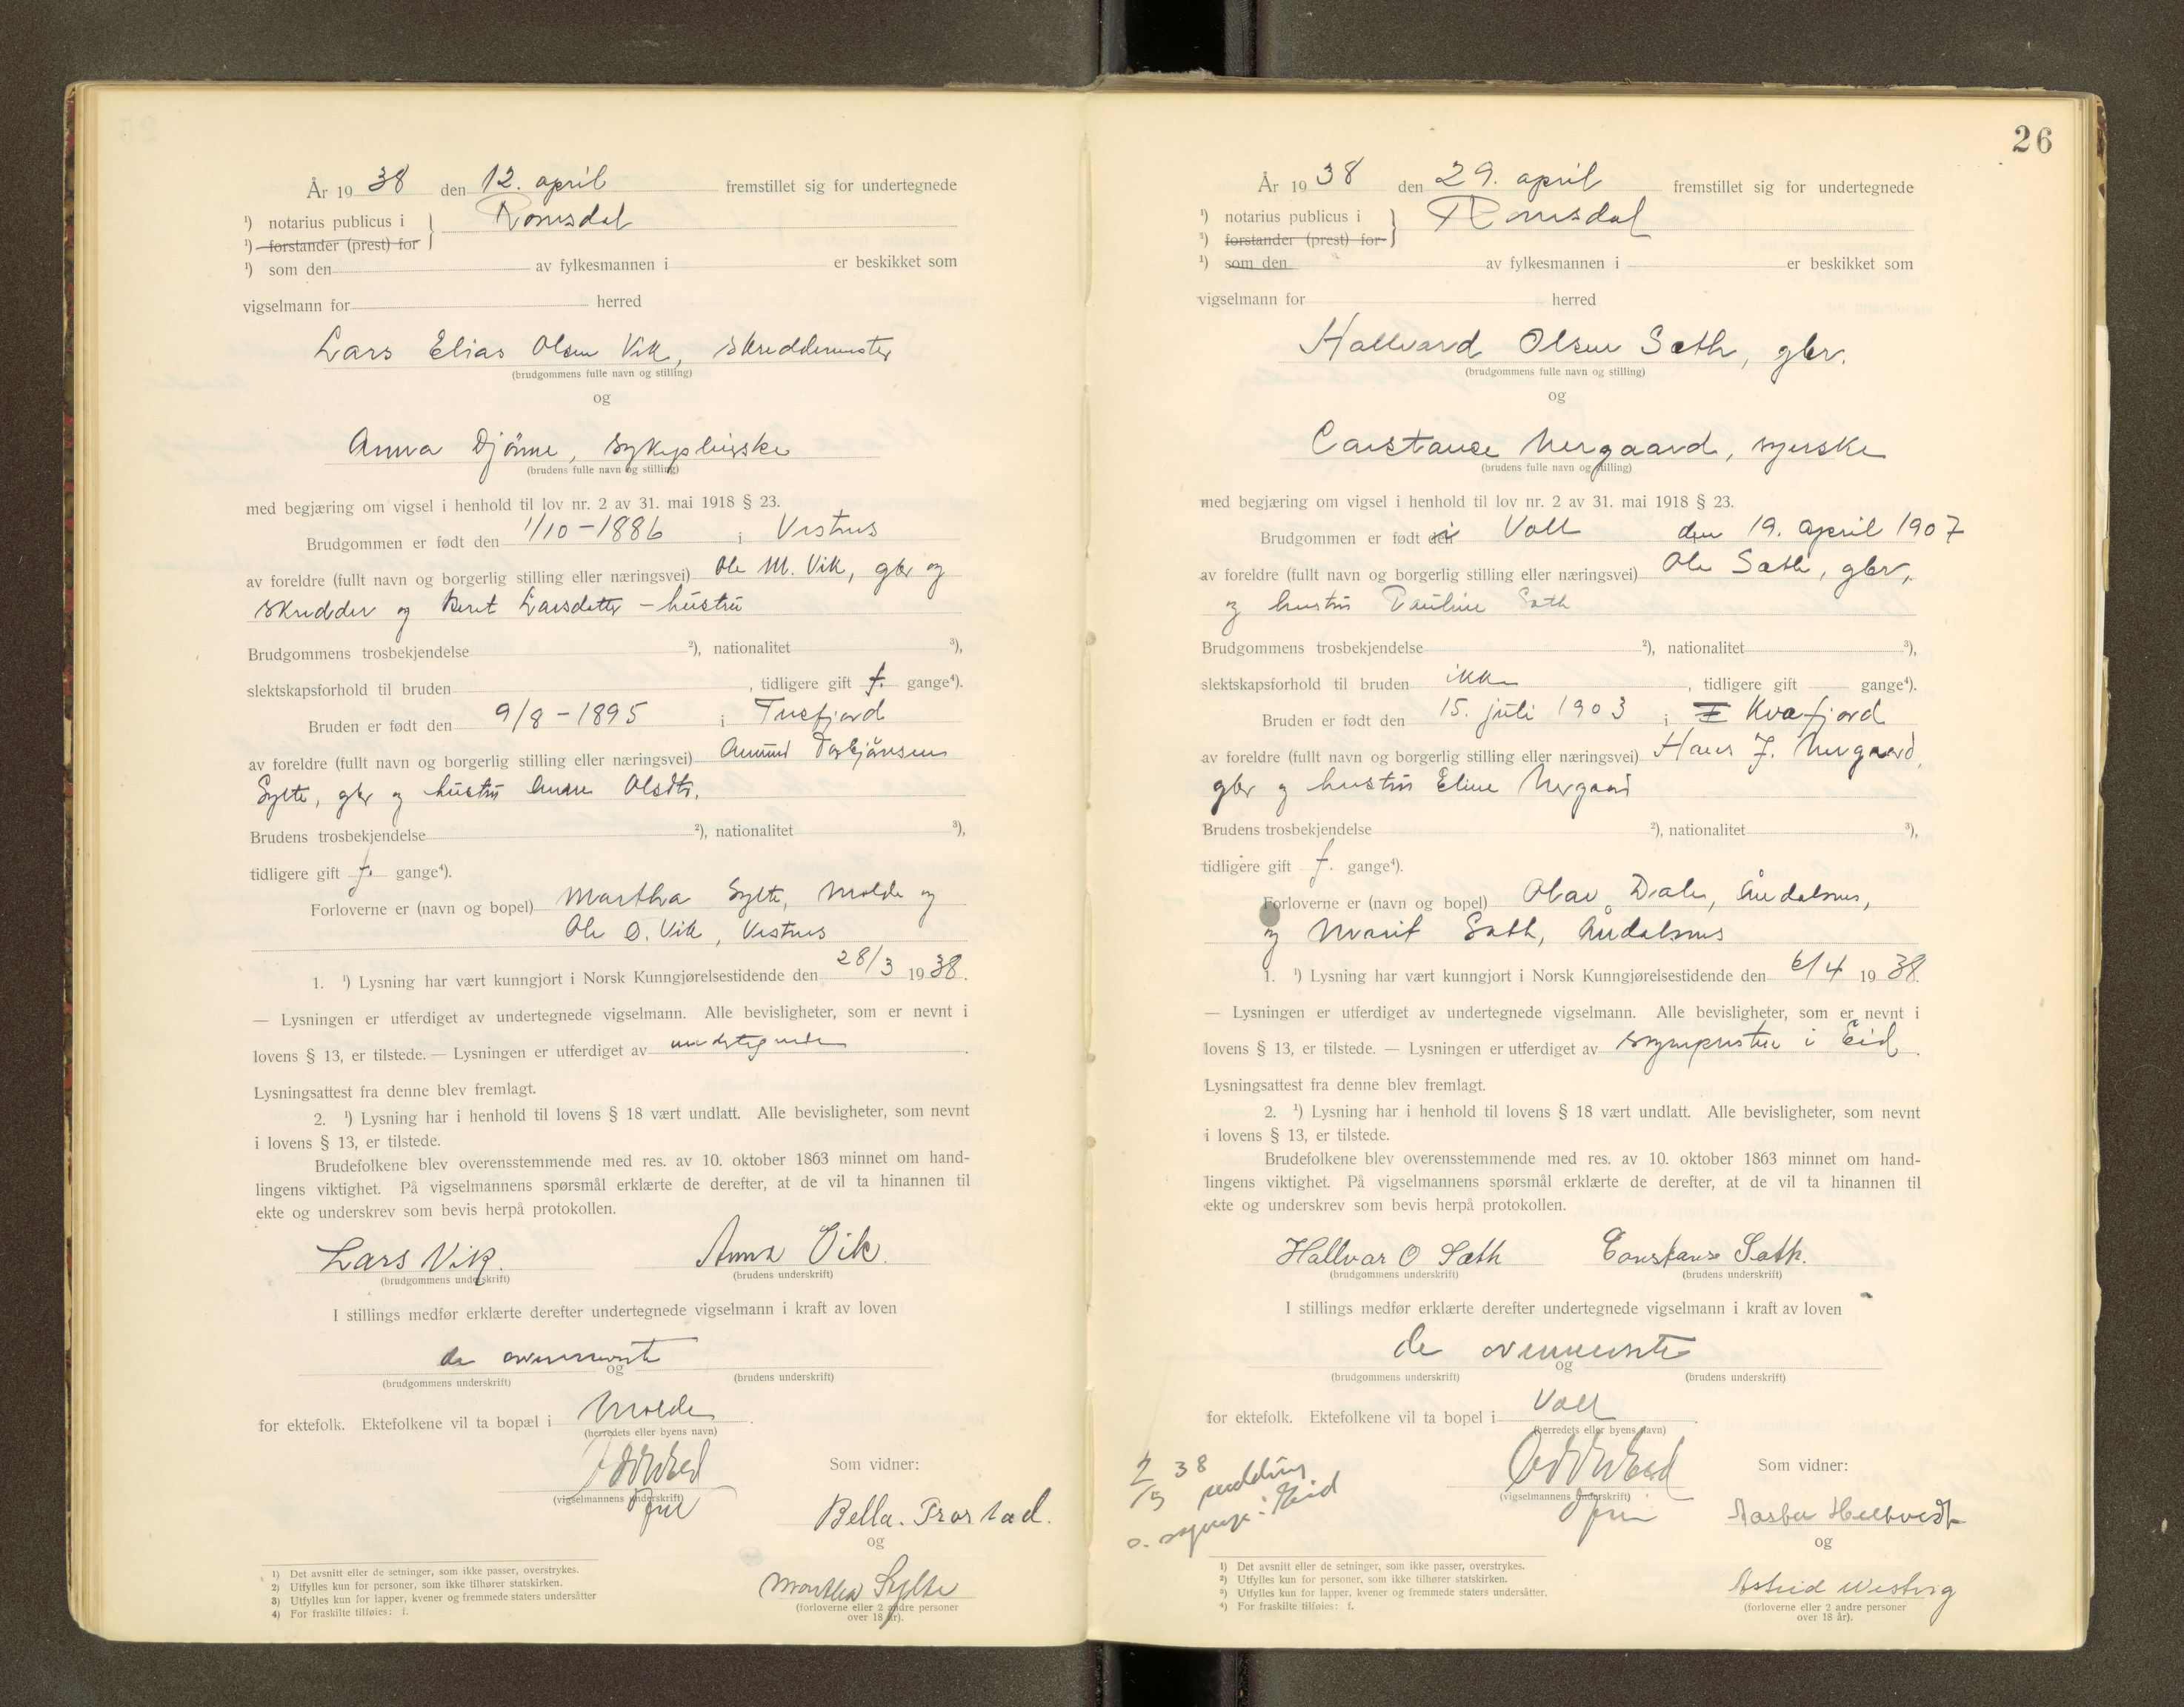 År 19 38 den 12. april fremstillet sig for undertegnede
¹) notarius publicus i } Romsdal
¹) forstander (prest) for
¹) som den av fylkesmannen i er beskikket som
vigselmann for herred
Lars Elias Olsen Vik, skreddermester
(brudgommens fulle navn og stilling)
og
Anna Djönne, sykepleierske
(brudens fulle navn og stilling)
med begjæring om vigsel i henhold til lov nr. 2 av 31. mai 1918 § 23.
Brudgommen er født den 1/10-1886 i Vestnes
av foreldre (fullt navn og borgerlig stilling eller næringsvei) Ole M. Vik, gbr og
skredder og Beret Larsdatter - hustru
Brudgommens trosbekjendelse ²), nationalitet ³),
slektskapsforhold til bruden , tidligere gift f. gange⁴).
Bruden er født den 9/8-1895 i Tresfjord
av foreldre (fullt navn og borgerlig stilling eller næringsvei) Amund Torbjörnsen
Sylte, gbr og hustru Olsdtr.
Brudens trosbekjendelse ²), nationalitet ³),
tidligere gift f. gange⁴).
Forloverne er (navn og bopel) Martha Sylte, Molde og
Ole O. Vik, Vestnes
1. ¹) Lysning har vært kunngjort i Norsk Kunngjørelsestidende den 28/3 1938.
— Lysningen er utferdiget av undertegnede vigselmann. Alle bevisligheter, som er nevnt i
lovens § 13, er tilstede. — Lysningen er utferdiget av undertegnede .
Lysningsattest fra denne blev fremlagt.
2. ¹) Lysning har i henhold til lovens § 18 vært undlatt. Alle bevisligheter, som nevnt
i lovens § 13, er tilstede.
Brudefolkene blev overensstemmende med res. av 10. oktober 1863 minnet om hand-
lingens viktighet. På vigselmannens spørsmål erklærte de derefter, at de vil ta hinannen til
ekte og underskrev som bevis herpå protokollen.
Lars Vik. Anna Vik.
(brudgommens underskrift) (brudens underskrift)
I stillings medfør erklærte derefter undertegnede vigselmann i kraft av loven
de ovennevnte
og
(brudgommens underskrift) (brudens underskrift)
for ektefolk. Ektefolkene vil ta bopæl i Molde .
(herredets eller byens navn)
Som vidner:
(vigselmannens underskrift)
Bella. Trostad.
og
Martha Sylte
(forloverne eller 2 andre personer
over 18 år).
1) Det avsnitt eller de setninger, som ikke passer, overstrykes.
2) Utfylles kun for personer, som ikke tilhører statskirken.
3) Utfylles kun for lapper, kvener og fremmede staters undersåtter
4) For fraskilte tilføies: f.
26
År 19 38 den 29. april fremstillet sig for undertegnede
¹) notarius publicus i } Romsdal
¹) forstander (prest) for
¹) som den av fylkesmannen i er beskikket som
vigselmann for herred
Hallvard Olsen Sæth, gbr.
(brudgommens fulle navn og stilling)
og
Constanse Nergaard, syerske
(brudens fulle navn og stilling)
med begjæring om vigsel i henhold til lov nr. 2 av 31. mai 1918 § 23.
Brudgommen er født den i Voll den 19. april 1907
av foreldre (fullt navn og borgerlig stilling eller næringsvei) Ole Sæth, gbr,
og hustru Pauline Sæth
Brudgommens trosbekjendelse ²), nationalitet ³),
slektskapsforhold til bruden ikke , tidligere gift gange⁴).
Bruden er født den 15. juli 1903 i Kvæfjord
av foreldre (fullt navn og borgerlig stilling eller næringsvei) Hans J. Nergaard,
gbr og hustru Eline Nergaard
Brudens trosbekjendelse ²), nationalitet ³),
tidligere gift f. gange⁴).
Forloverne er (navn og bopel) Olav Dale, Åndalsnes,
og Marit Sæth, Åndalsnes
1. ¹) Lysning har vært kunngjort i Norsk Kunngjørelsestidende den 6/4 19 38.
— Lysningen er utferdiget av undertegnede vigselmann. Alle bevisligheter, som er nevnt i
lovens § 13, er tilstede. — Lysningen er utferdiget av sogneprsten i Eid .
Lysningsattest fra denne blev fremlagt.
2. ¹) Lysning har i henhold til lovens § 18 vært undlatt. Alle bevisligheter, som nevnt
i lovens § 13, er tilstede.
Brudefolkene blev overensstemmende med res. av 10. oktober 1863 minnet om hand-
lingens viktighet. På vigselmannens spørsmål erklærte de derefter, at de vil ta hinannen til
ekte og underskrev som bevis herpå protokollen.
Hallvar O Sæth Constanse Sæth.
(brudgommens underskrift) (brudens underskrift)
I stillings medfør erklærte derefter undertegnede vigselmann i kraft av loven
de ovennevnte
og
(brudgommens underskrift) (brudens underskrift)
for ektefolk. Ektefolkene vil ta bopel i Voll .
(herredets eller byens navn)
2/5 38 melding
i Eid
Som vidner:
(vigselmannens underskrift)
og
Astrid Westvig
(forloverne eller 2 andre personer
over 18 år).
1) Det avsnitt eller de setninger, som ikke passer, overstrykes.
2) Utfylles kun for personer, som ikke tilhører statskirken.
3) Utfylles kun for lapper, kvener og fremmede staters undersåtter.
4) For fraskilte tilføies: f.